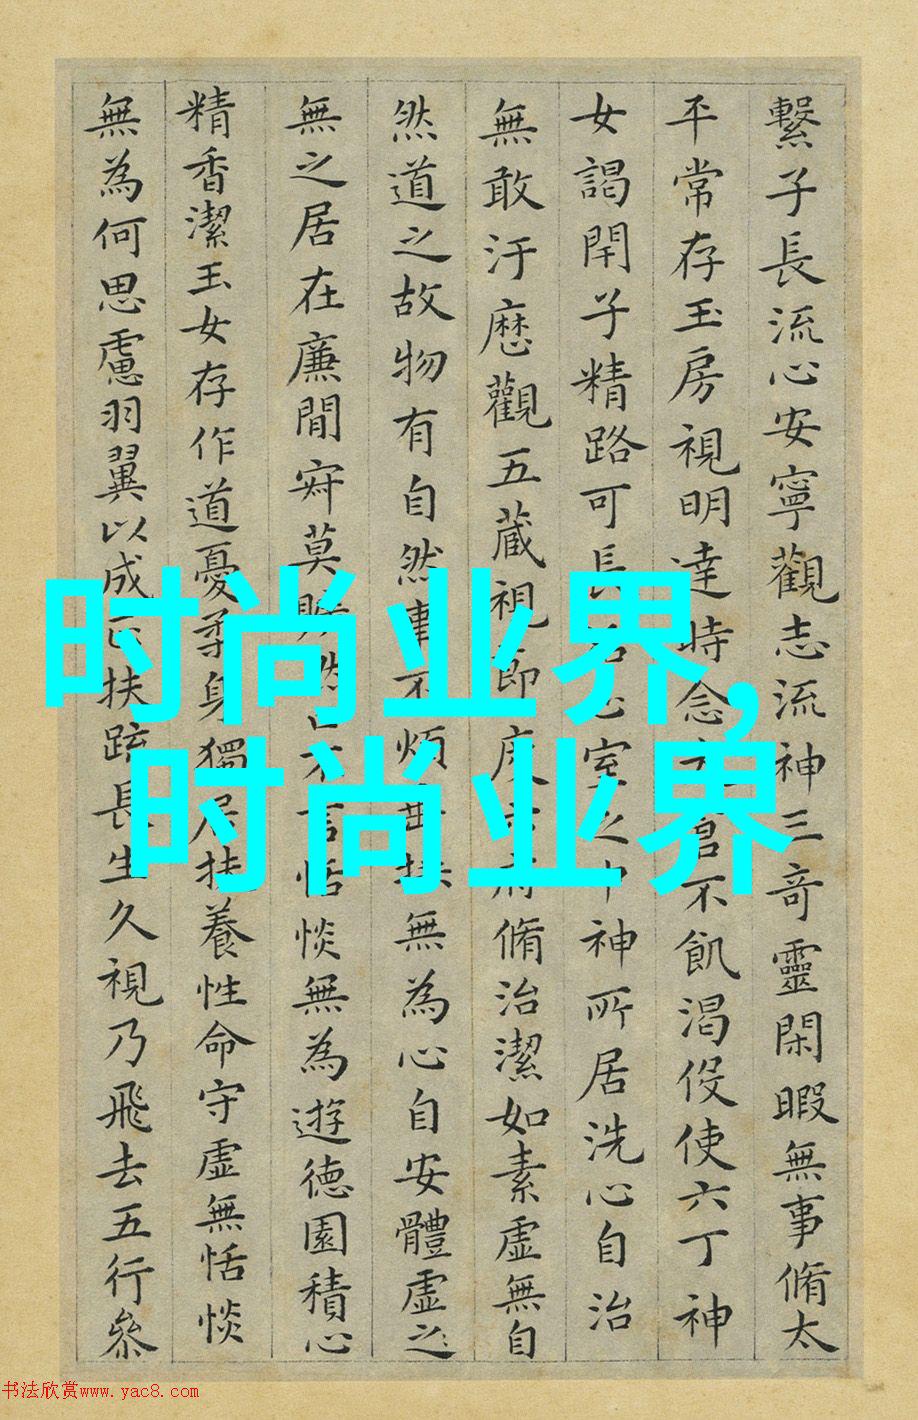 繫子長流心安寧觀志流神三奇靈閑暇無事脩太
平常存玉房視明達時念太倉不飢渴役使六丁神
女謁閇子精路可長活正室之中神所居洗心自治
無敢汙歷觀五藏視節度六府脩治潔如素虛無自
然道之故物有自然事不煩垂拱無為心自安體虛之
無之居在廉間寂莫曠然口不言恬惔無為遊德園積心
精香潔玉女存作道憂柔身獨居扶養性命守虛無恬惔
無為何思慮羽翼以成正扶疏長生久視乃飛去五行參
时尚业界,
时尚业界
书法欣赏www.yac8.com